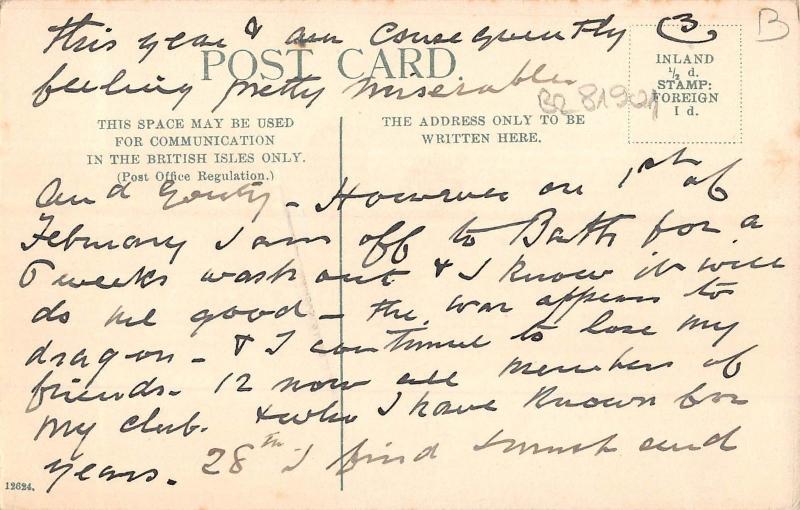 this year & am consequently ③
B
feeling pretty miserable
POST CARD.
INLAND
½ d.
STAMP:
FOREIGN
1 d.
THIS SPACE MAY BE USED
FOR COMMUNICATION
IN THE BRITISH ISLES ONLY.
(Post Office Regulation.)
THE ADDRESS ONLY TO BE
WRITTEN HERE.
and gouty – However on 1st of
February I am off to Bath for a
6 weeks wash out & I know it will
do me good – the war appears to
drag on – & I continue to lose my
friends. 12 now all members of
my club. & who I have known for
years. 28th I find I must end
12624.